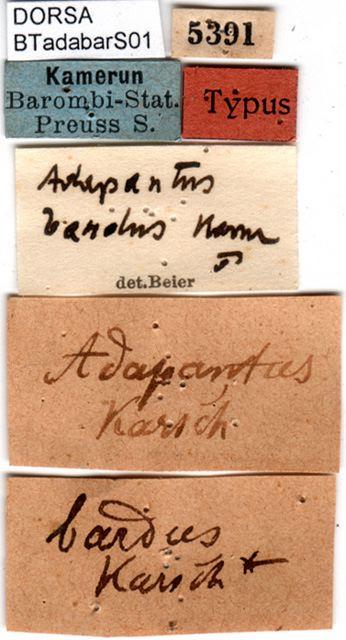 DORSA
BTadabarS01
5391
Kamerun
Barombi-Stat.
Preuss S.
Typus
Adapantus
bardus Karsch
det.Beier
Adapantus
Karsch
bardus
Karsch *